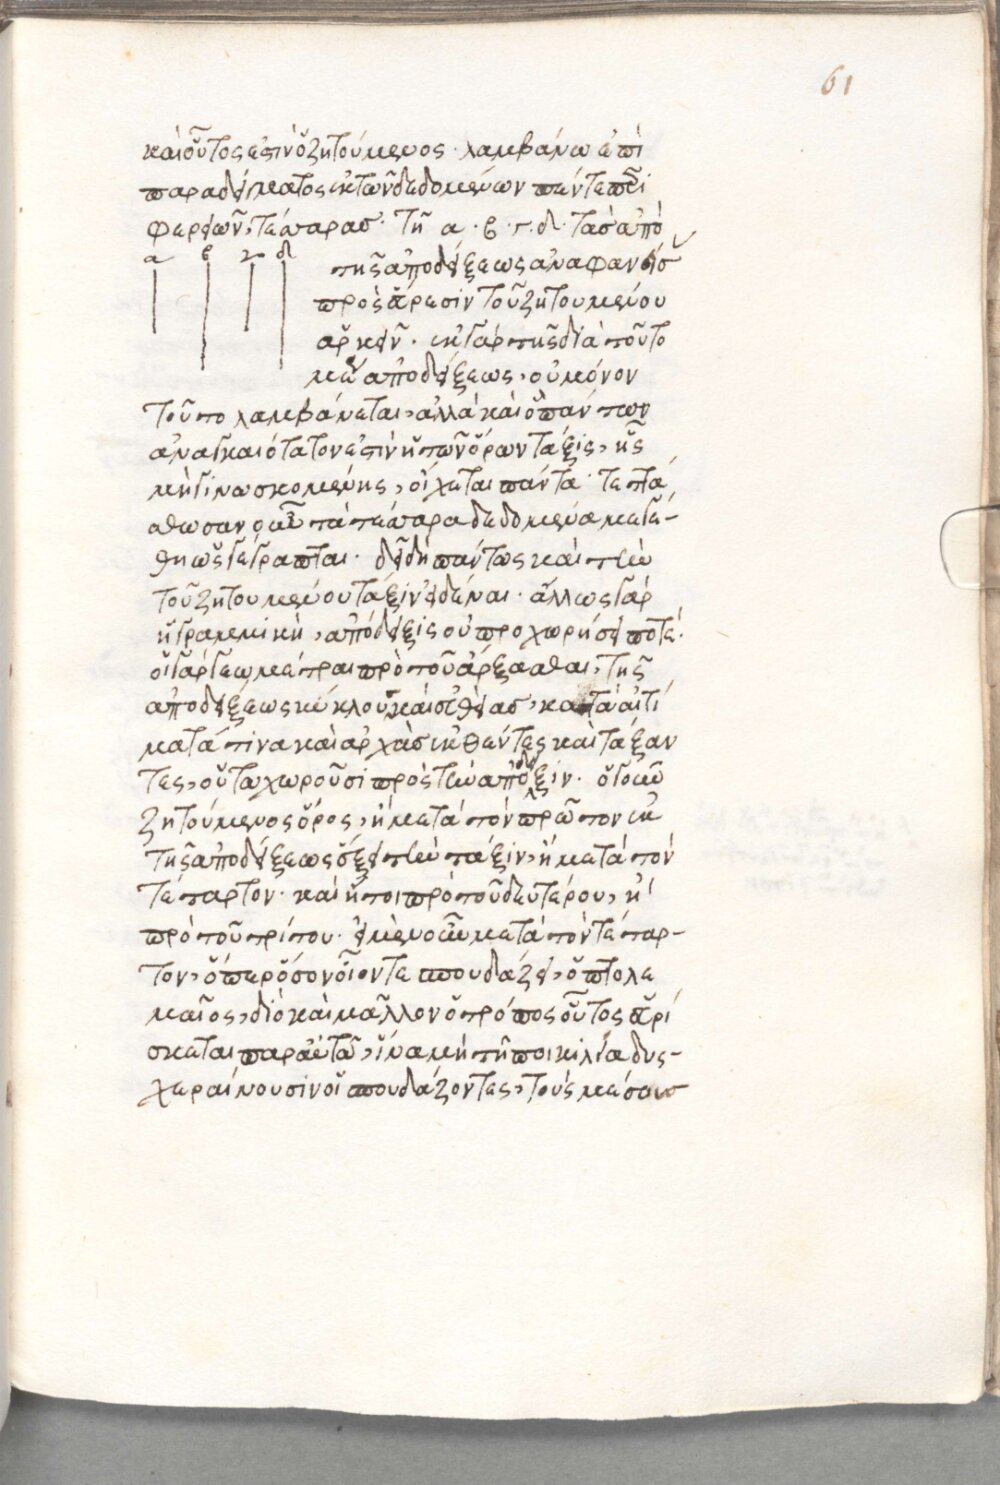 61
καὶ οὗτος ἐστὶν ὁ ζητούμενος · λαμβάνω ἐπὶ
παραδείματος ἐκ τῶν δεδομένων πέντε
τέσσαρας · τῆ α · β · γ · δ · τὰς ἀπὸ
α β γ δ
τῆς ἀποδείξεως ἀναφανείσ
πρὸς εὕρεσιν τοῦ ζητουμένου
ἀρκεῖν · ἐκ γὰρ τῆς διὰ τοῦτο
μεν ἀποδείξεως, οὐ μόνον
τοῦτο λαμβάνεται, ἀλλὰ καὶ ὃ πάντων
ἀναγκαιότατον ἐστὶν ἡ τῶν ὅρων τάξις, ἧς
μὴ γινωσκομένης, οἴχεται πάντα · τετά
χθωσαν τὰ τέσσαρα δεδομένα μεγέ-
θη ὡς γέγραπται · δεῖ δὴ πάντως καὶ τὴν
τοῦ ζητουμένου τάξιν εἰδέναι · ἄλλως γὰρ
ἡ γραμμικὴ, ἀπόδειξις οὐ προχωρήσει ποτέ ·
οἱ γὰρ γεωμέτραι πρὸ τοῦ ἄρξασθαι, τῆς
ἀποδείξεως κύκλους καὶ εὐθείας, καὶ τὰ αἰτή
ματά τινα καὶ ἀρχὰς ἐκθέντες καὶ τάξαν
τες, οὕτω χωροῦσι πρὸς τὴν ἀπόδειξιν · ὁ γοῦν
ζητούμενος ὅρος, ἢ μετὰ τὸν πρῶτον ἐκ
τῆς ἀποδείξεως ἕξει τὴν τάξιν, ἢ μετὰ τὸν
τέταρτον · καὶ ἤτοι πρὸ τοῦ δευτέρου, ἢ
πρὸ τοῦ τρίτου · εἰ μὲν οὖν μετὰ τὸν τέταρ-
τον, ὅπερ ὅσον οἷόν τε σπουδάζει, ὁ πτολε
μαῖος, διὸ καὶ μᾶλλον ὁ τρόπος οὗτος εὑρί
σκεται παρ' αὐτῶ, ἵνα μὴ τῆ ποικιλία δυσ-
χεραίνουσιν οἱ σπουδάζοντες, τοὺς μέσους